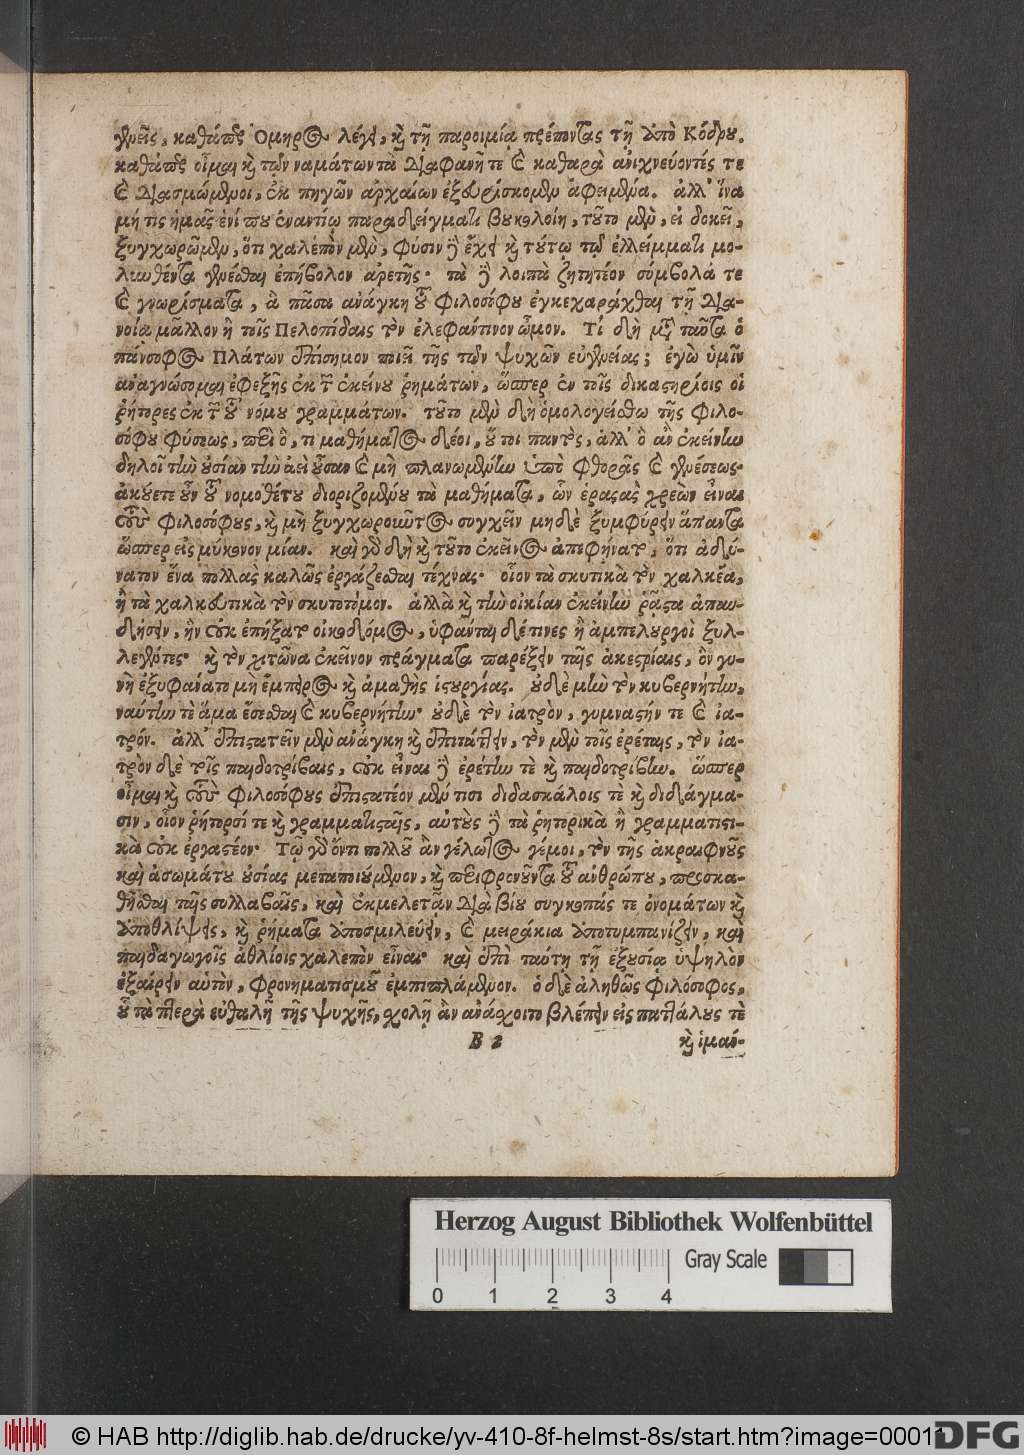 γενεῖς, καθάπερ Ὅμηρος λέγει, καὶ τῇ παροιμίᾳ πρέποντας τῇ ὑπὸ Κόδρου.
καθάπερ οἶμαι καὶ τῶν ναμάτων τὰ διαφανῆ τε καὶ καθαρὰ ἀνιχνεύοντές τε
καὶ, ἐκ πηγῶν ἀρχαίων ἐξευρίσκομεν ἀφειμένα. ἀλλ' ἵνα
μή τις ἡμᾶς ἑνί που ἐναντίῳ παραδείγματι βουκολοίη, τοῦτο μὲν, εἰ δοκεῖ,
ξυγχωρῶμεν, ὅτι χαλεπὸν μὲν, φύσιν δὲ ἔχει καὶ τούτῳ τῷ ἐλλείμματι μο-
λυνθέντα γενέσθαι ἐπήβολον ἀρετῆς· τὰ δὲ λοιπὰ ζητητέον σύμβολά τε
καὶ γνωρίσματα, ἃ πᾶσα ἀνάγκη τοῦ φιλοσόφου ἐγκεχαράχθαι τῇ δια-
νοίᾳ μᾶλλον ἢ τοῖς Πελοπίδαις τὸν ἐλεφάντινον ὦμον. Τί δὴ μετὰ ταῦτα ὁ
πάνσοφος Πλάτων ἐπίσημον ποιεῖ τῆς τῶν ψυχῶν εὐγενείας; ἐγὼ ὑμῖν
ἀναγνώσομαι ἐφεξῆς ἐκ τῶν ἐκείνου ῥημάτων, ὥσπερ ἐν τοῖς δικαστηρίοις οἱ
ῥήτορες ἐκ τῶν τοῦ νόμου γραμμάτων. τοῦτο μὲν δὴ ὁμολογείσθω τῆς φιλο-
σόφου φύσεως, περὶ ὅ, τι μαθήματος δέοι, οὔ τοι παντὸς, ἀλλ' ὃ ἂν ἐκείνην
δηλοῖ τὴν οὐσίαν τὴν ἀεὶ οὖσαν καὶ μὴ πλανωμένην ὑπὸ φθορᾶς καὶ γενέσεως·
ἀκούετε οὖν τοῦ νομοθέτου διοριζομένου τὰ μαθήματα, ὧν ἐραστὰς χρεὼν εἶναι
τοὺς φιλοσόφους, καὶ μὴ ξυγχωροῦντος συγχεῖν μηδὲ ξυμφύρειν ἅπαντα
ὥσπερ εἰς μύκονον μίαν. καὶ γὰρ δὴ καὶ τοῦτο ἐκεῖνος ἀπεφήνατο, ὅτι ἀδύ-
νατον ἕνα πολλὰς καλῶς ἐργάζεσθαι τέχνας· οἷον τὰ σκυτικὰ τὸν χαλκέα,
ἢ τὰ χαλκευτικὰ τὸν σκυτοτόμον. ἀλλὰ καὶ τὴν οἰκίαν ἐκείνην ῥᾷστα ἀπαυ-
δήσειν, ἣν οὐκ ἐπήξατο οἰκοδόμος, ὑφάνται δέ τινες ἢ ἀμπελουργοὶ ξυλ-
λεγέντες· καὶ τὸν χιτῶνα ἐκεῖνον πράγματα παρέξειν ταῖς ἀκεστρίαις, ὃν γυ-
νὴ ἐξυφαίνατο μὴ ἔμπειρος καὶ ἀμαθὴς ἱστουργίας. οὐδὲ μὴν τὸν κυβερνήτην,
ναύτην τὲ ἅμα ἔσεσθαι καὶ κυβερνήτην· οὐδὲ τὸν ἰατρὸν, γυμναστήν τε καὶ ἰα-
τρόν. ἀλλ' ἐπιστατεῖν μὲν ἀνάγκη καὶ ἐπιτάττειν, τὸν μὲν τοῖς ἐρέταις, τὸν ἰα-
τρὸν δὲ τοῖς παιδοτρίβαις, οὐκ εἶναι δὲ ἐρέτην τὲ καὶ παιδοτρίβην. ὥσπερ
οἶμαι καὶ τοὺς φιλοσόφους ἐπιστατέον μέν τισι διδασκάλοις τὲ καὶ διδάγμα-
σιν, οἷον ῥήτορσί τε καὶ γραμματισταῖς, αὐτοὺς δὲ τὰ ῥητορικὰ ἢ γραμματιστι-
κὰ οὐκ ἐργαστέον· Τῷ γὰρ ὄντι πολλοῦ ἂν γέλωτος γέμοι, τὸν τῆς ἀκραιφνοῦς
καὶ ἀσωμάτου οὐσίας μεταποιούμενον, καὶ περιφρονοῦντα τοῦ ἀνθρώπου, προσκα-
θῆσθαι ταῖς συλλαβαῖς, καὶ ἐκμελετᾶν διὰ βίου συγκοπάς τε ὀνομάτων καὶ
ὑποθλίψεις, καὶ ῥήματα ὑποσμιλεύειν, καὶ μειράκια ὑποτυμπανίζειν, καὶ
παιδαγωγοῖς ἀθλίοις χαλεπὸν εἶναι· καὶ ἐπὶ ταύτῃ τῇ ἐξουσίᾳ ὑψηλὸν
ἐξαίρειν αὑτὸν, φρονηματισμοῦ ἐμπιπλάμενον. ὁ δὲ ἀληθῶς φιλόσοφος,
οὗ τὰ πτερὰ εὐθαλῆ τῆς ψυχῆς, σχολῇ ἂν ἀνάσχοιτο βλέπειν εἰς παττάλους τὲ
B 2 καὶ ἱμάν-
Herzog August Bibliothek Wolfenbüttel
Gray Scale
0 1 2 3 4
© HAB http://diglib.hab.de/drucke/yv-410-8f-helmst-8s/start.htm?image=00011
DFG